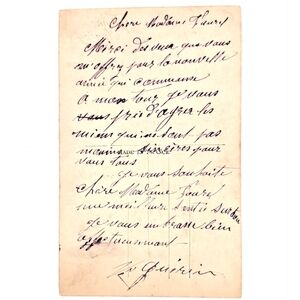 Chère Madame Faure
Merci des vœux que vous
m'offrez pour la nouvelle
année qui commence
A mon tour je vous
vous prie d'agréer les
miens qui ne sont pas
moins sincères pour
vous tous
je vous souhaite
chère Madame Faure
une meilleure santé
je vous embrasse bien
affectueusement
Guérin